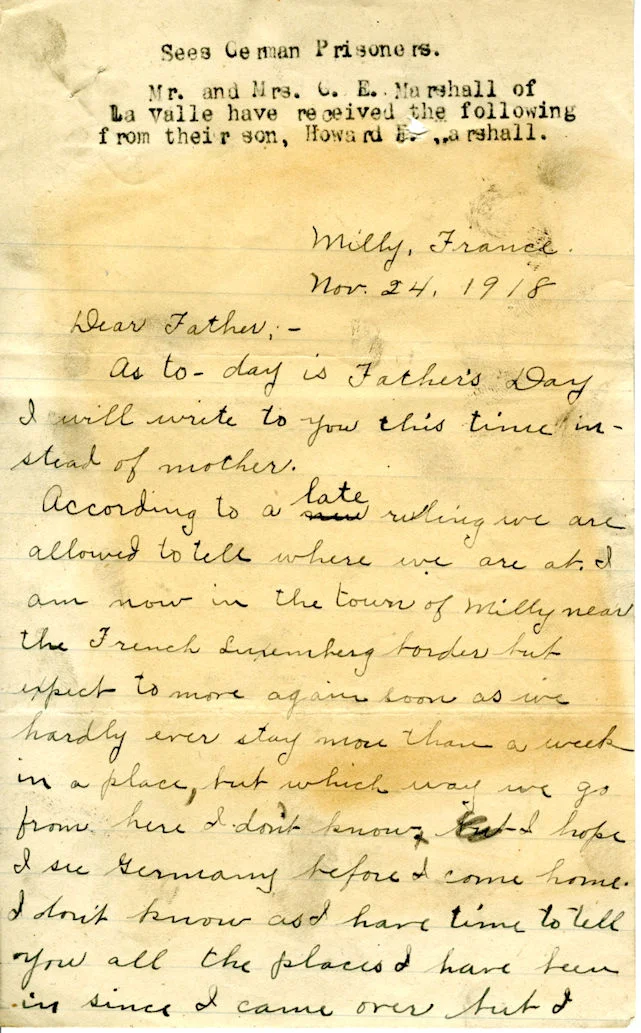 Sees German Prisoners.
Mr. and Mrs. C. E. Marshall of
La Valle have received the following
from their son, Howard E. Marshall.
Milly, France.
Nov. 24, 1918
Dear Father; -
As to-day is Father's Day
I will write to you this time in-
stead of mother.
late
According to a new ruling we are
allowed to tell where we are at. I
am now in the town of Milly near
the French Luxemberg border but
expect to move again soon as we
hardly ever stay more than a week
in a place, but which way we go
from here I don't know, but I hope
I see Germany before I come home.
I don't know as I have time to tell
you all the places I have been
in since I came over but I